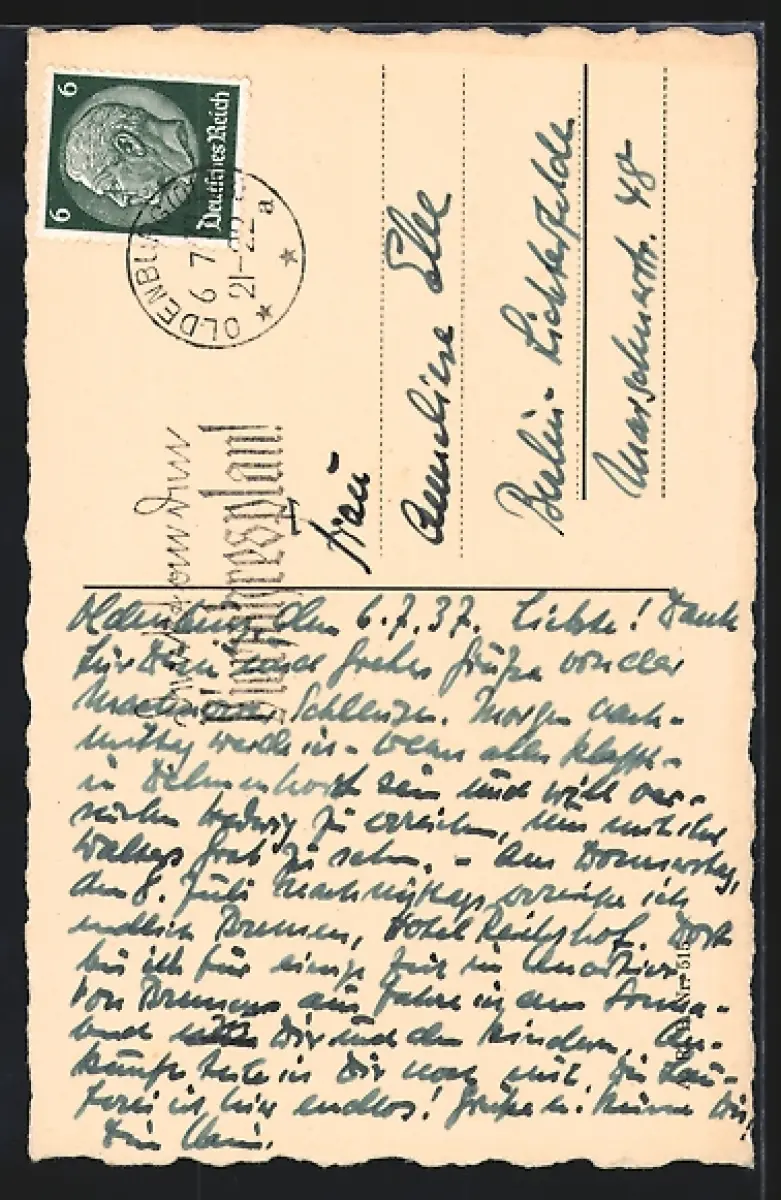 6
6
Deutsches Reich
OLDENBURG
6 7
21-22
a
Vierjahresplan!
Frau
Anneliese
Berlin-Lichterfelde
Marschnerstr. 48
Oldenburg den 6.7.37. Liebste! Dank
für und Grüße von der
Schleuse. Morgen Nach-
mittag werde ich - wenn alles klappt -
in Delmenhorst sein und will ver-
suchen Hedwig zu erreichen, um mit ihr
Walters Grab zu sehen. - Am Donnerstag,
den 8. Juli Nachmittags erreiche ich
endlich Bremen, Hotel Reichshof. Dort
bin ich für einige Zeit in Quartier.
Von Bremen aus fahre ich am Sonna-
bend Dir und den Kindern. An-
kunft teile ich Dir noch mit. Die Lau-
ferei ist hier endlos! Grüße u. Küsse
Dein
Nr. 515